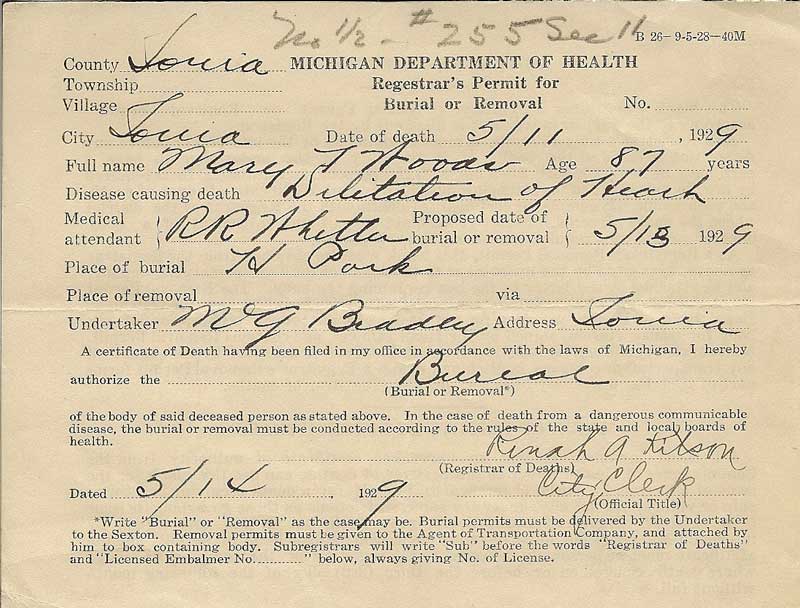 No 1/2 - # 255 Sec 11
B 26-9-5-28-40M
County Ionia MICHIGAN DEPARTMENT OF HEALTH
Township Regestrar's Permit for
Village Burial or Removal No.
City Ionia Date of death 5/11, 1929
Full name Mary T Woods Age 87 years
Disease causing death Dilitation of Heart
Medical attendant { R R Whitten Proposed date of burial or removal { 5/13 1929
Place of burial H Park
Place of removal via
Undertaker M G Bradley Address Ionia
A certificate of Death having been filed in my office in accordance with the laws of Michigan, I hereby
authorize the Bureal
(Burial or Removal*)
of the body of said deceased person as stated above. In the case of death from a dangerous communicable
disease, the burial or removal must be conducted according to the rules of the state and local boards of
health. Rinah A
(Registrar of Deaths)
City Clerk
Dated 5/14, 1929 (Official Title)
*Write "Burial" or "Removal" as the case may be. Burial permits must be delivered by the Undertaker
to the Sexton. Removal permits must be given to the Agent of Transportation Company, and attached by
him to box containing body. Subregistrars will write "Sub" before the words "Registrar of Deaths"
and "Licensed Embalmer No..........." below, always giving No. of License.